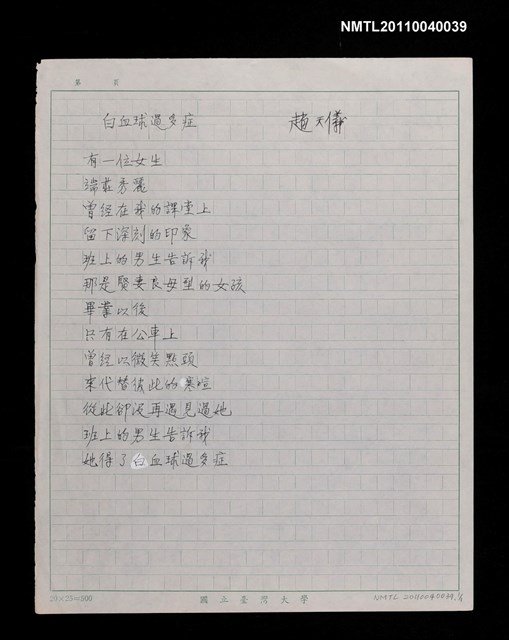 NMTL20110040039
第 頁
白血球過多症 趙天儀
有一位女生
端莊秀麗
曾經在我的課堂上
留下深刻的印象
班上的男生告訴我
那是賢妻良母型的女孩
畢業以後
只有在公車上
曾經以微笑點頭
來代替彼此的寒暄
從此卻沒再遇見過她
班上的男生告訴我
她得了白血球過多症
20×25=500 國立臺灣大學 NMTL 20110040039